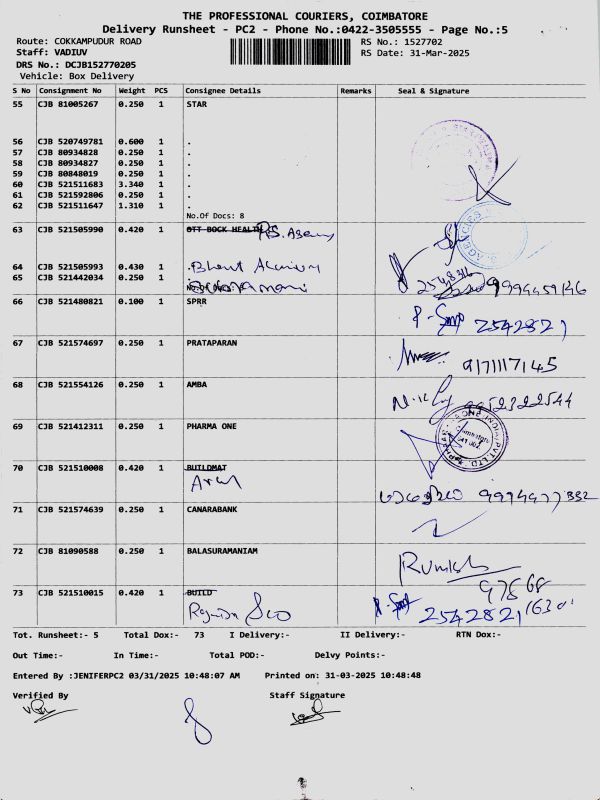 THE PROFESSIONAL COURIERS, COIMBATORE
Delivery Runsheet - PC2 - Phone No.:0422-3505555 - Page No.:5
Route: COKKAMPUDUR ROAD RS No.: 1527702
Staff: VADIUV RS Date: 31-Mar-2025
DRS No.: DCJB152770205
Vehicle: Box Delivery
S No Consignment No Weight PCS Consignee Details Remarks Seal & Signature
55 CJB 81005267 0.250 1 STAR
56 CJB 520749781 0.600 1 .
57 CJB 80934828 0.250 1 .
58 CJB 80934827 0.250 1 .
59 CJB 80848019 0.250 1 .
60 CJB 521511683 3.340 1 .
61 CJB 521592806 0.250 1 .
62 CJB 521511647 1.310 1 .
No.Of Docs: 8
63 CJB 521505990 0.420 1 OTT BOCK HEALTH
64 CJB 521505993 0.430 1 .Bharat
65 CJB 521442034 0.250 1
9994459146
66 CJB 521480821 0.100 1 SPRR
2542821
67 CJB 521574697 0.250 1 PRATAPARAN
9171117145
68 CJB 521554126 0.250 1 AMBA
9952322544
69 CJB 521412311 0.250 1 PHARMA ONE
70 CJB 521510008 0.420 1 BUILDMAT
71 CJB 521574639 0.250 1 CANARABANK
72 CJB 81090588 0.250 1 BALASURAMANIAM
73 CJB 521510015 0.420 1 BUILD
2542821
Tot. Runsheet:- 5 Total Dox:- 73 I Delivery:- II Delivery:- RTN Dox:-
Out Time:- In Time:- Total POD:- Delvy Points:-
Entered By :JENIFERPC2 03/31/2025 10:48:07 AM Printed on: 31-03-2025 10:48:48
Verified By Staff Signature